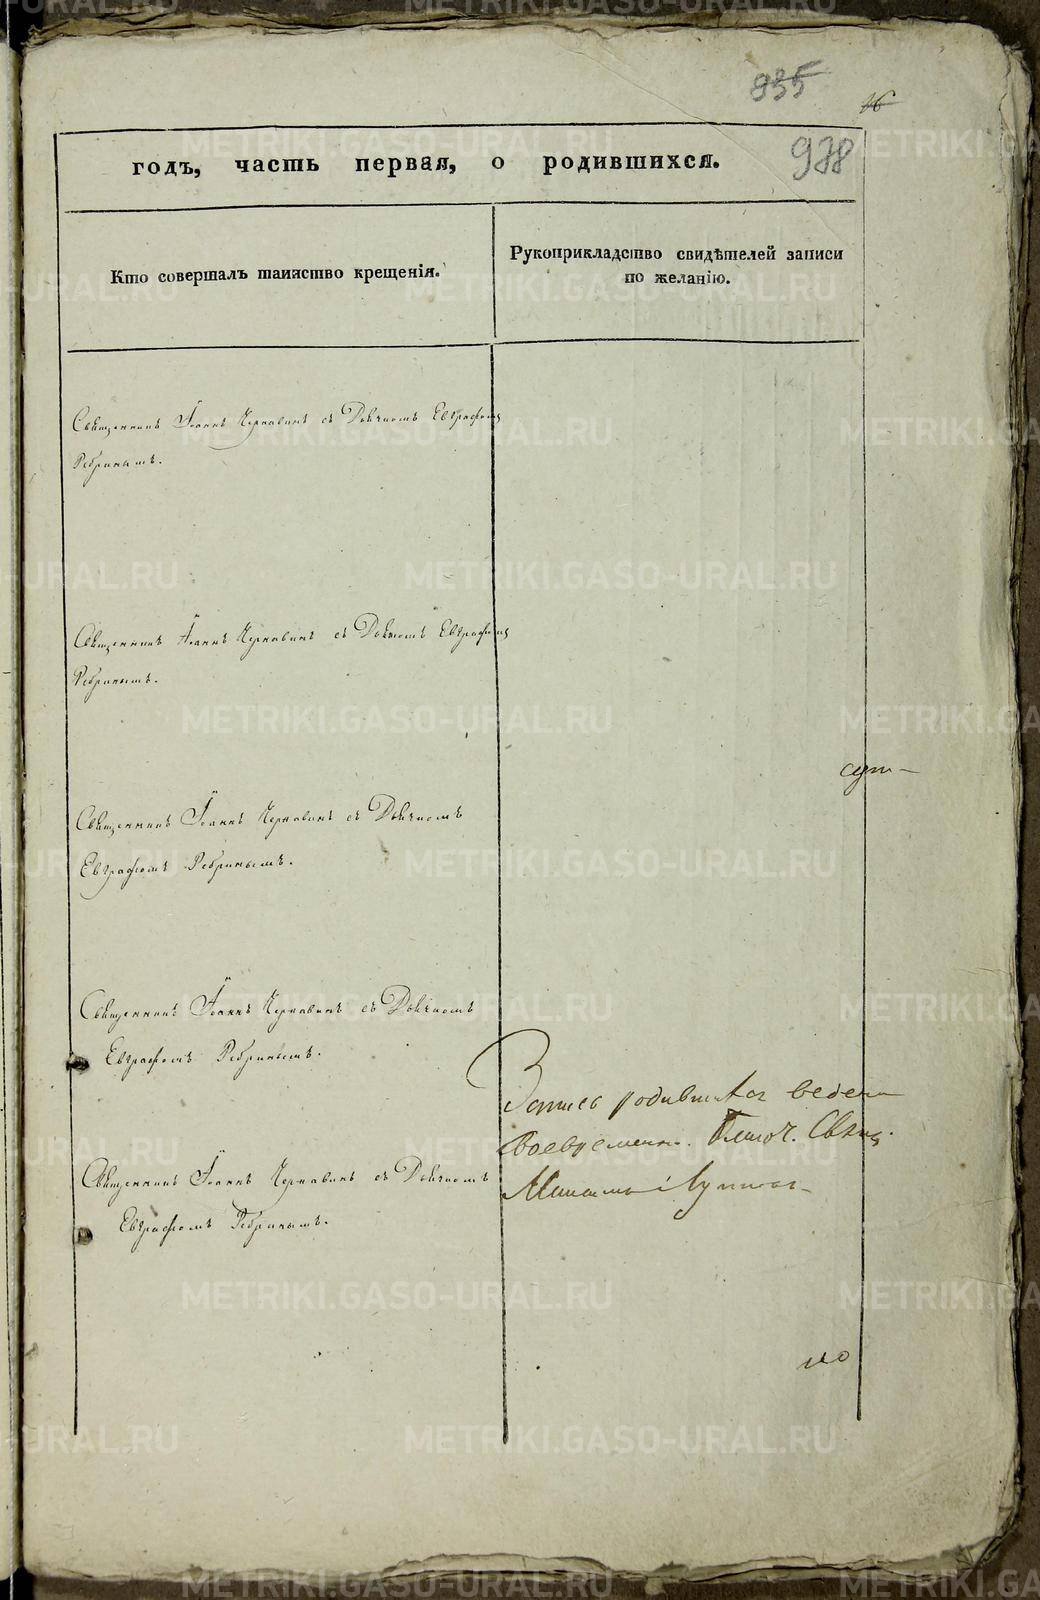 935
16
978
годъ, часть первая, о родившихся.
Кто совершалъ таинство крещенія.
Рукоприкладство свидѣтелей записи
по желанію.
Священникъ Іоаннъ Чернавинъ съ Дьячкомъ Евграфомъ
Ребринымъ.
Священникъ Іоаннъ Чернавинъ съ Дьячкомъ Евграфомъ
Ребринымъ.
сут-
Священникъ Іоаннъ Чернавинъ съ Дьячкомъ
Евграфомъ Ребринымъ.
Священникъ Іоаннъ Чернавинъ съ Дьячкомъ
Евграфомъ Ребринымъ.
Запись родившихся ведена
своевременно. Благоч. Свящ.
Священникъ Іоаннъ Чернавинъ съ Дьячкомъ
Евграфомъ Ребринымъ.
METRIKI.GASO-URAL.RU